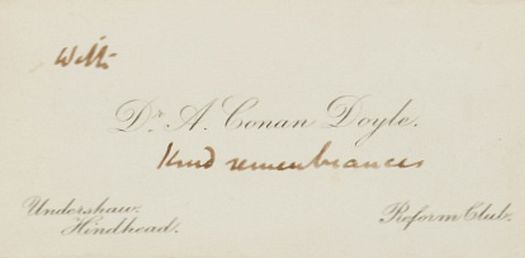 With
Dr. A. Conan Doyle.
Kind remembrances
Undershaw.
Hindhead.
Reform Club.